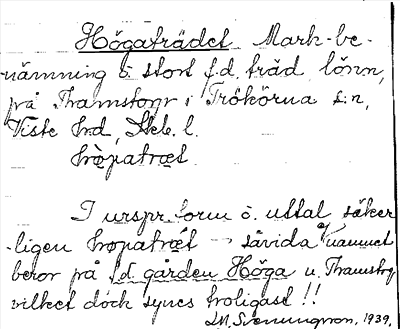 Högaträdet Mark-be-
nämning o. stort f.d. träd lönn,
på Framstorp i Trökörna s:n,
Viste hrd, Skb. l.

I urspr. form o. uttal säker-
ligen såvida namnet
beror på f.d. gården Höga u. Framstorp
vilket dock synes troligast!!
Svenungsson, 1939.